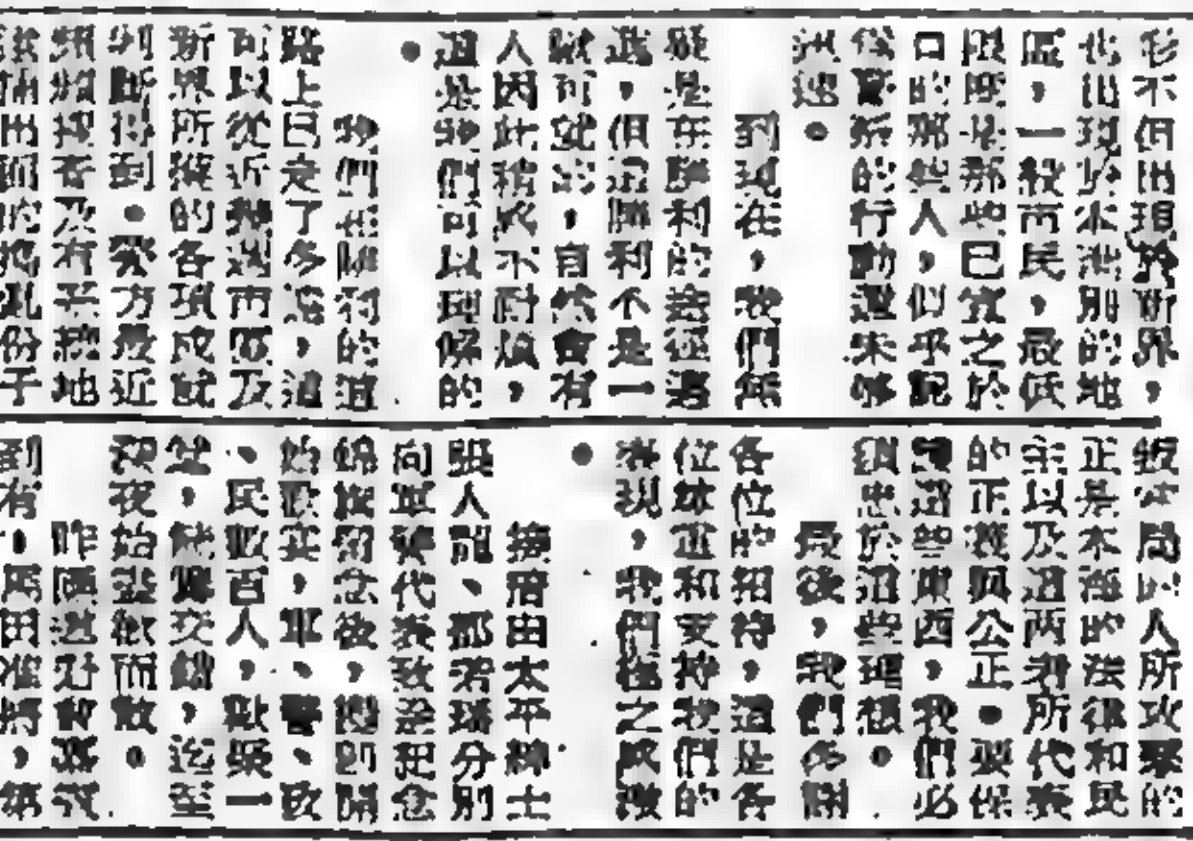 彩不但出現於新界，
也出現於本港別的地
區，一般市民，最低
限度是那些已實之於
口的那些人，似乎認
為警察的行動還未够
迅速。
到現在，我們無
疑是在勝利的途徑邁
進，但這勝利不是一
蹴可就的，自然會有
人因此稍表不耐煩，
這是我們可以理解的
。
我們在勝利的道
路上已走了多遠，這
可以從近幾週市區及
新界所獲的各項成就
判斷得到。警方最近
頻頻搜查及有系統地
出而 份子
所攻擊的
正是本港的法律和民
主以及這兩者所代表
的正義與公正。要保
這些東西，我們必
須忠於這些理想。
最後，我們多謝
各位的招待，這是各
位知道和支持我們的
表現，我們極之感激
。
接着由太平紳士
張人龍、鄧若璠分別
向軍警代表致送紀念
錦旗紀念後，隨即開
始歡宴，軍、警、政
、民數百人，歡聚一
堂，觥籌交錯，迄至
深夜始盡歡而散。
昨晚送 會
到有： 田准將，